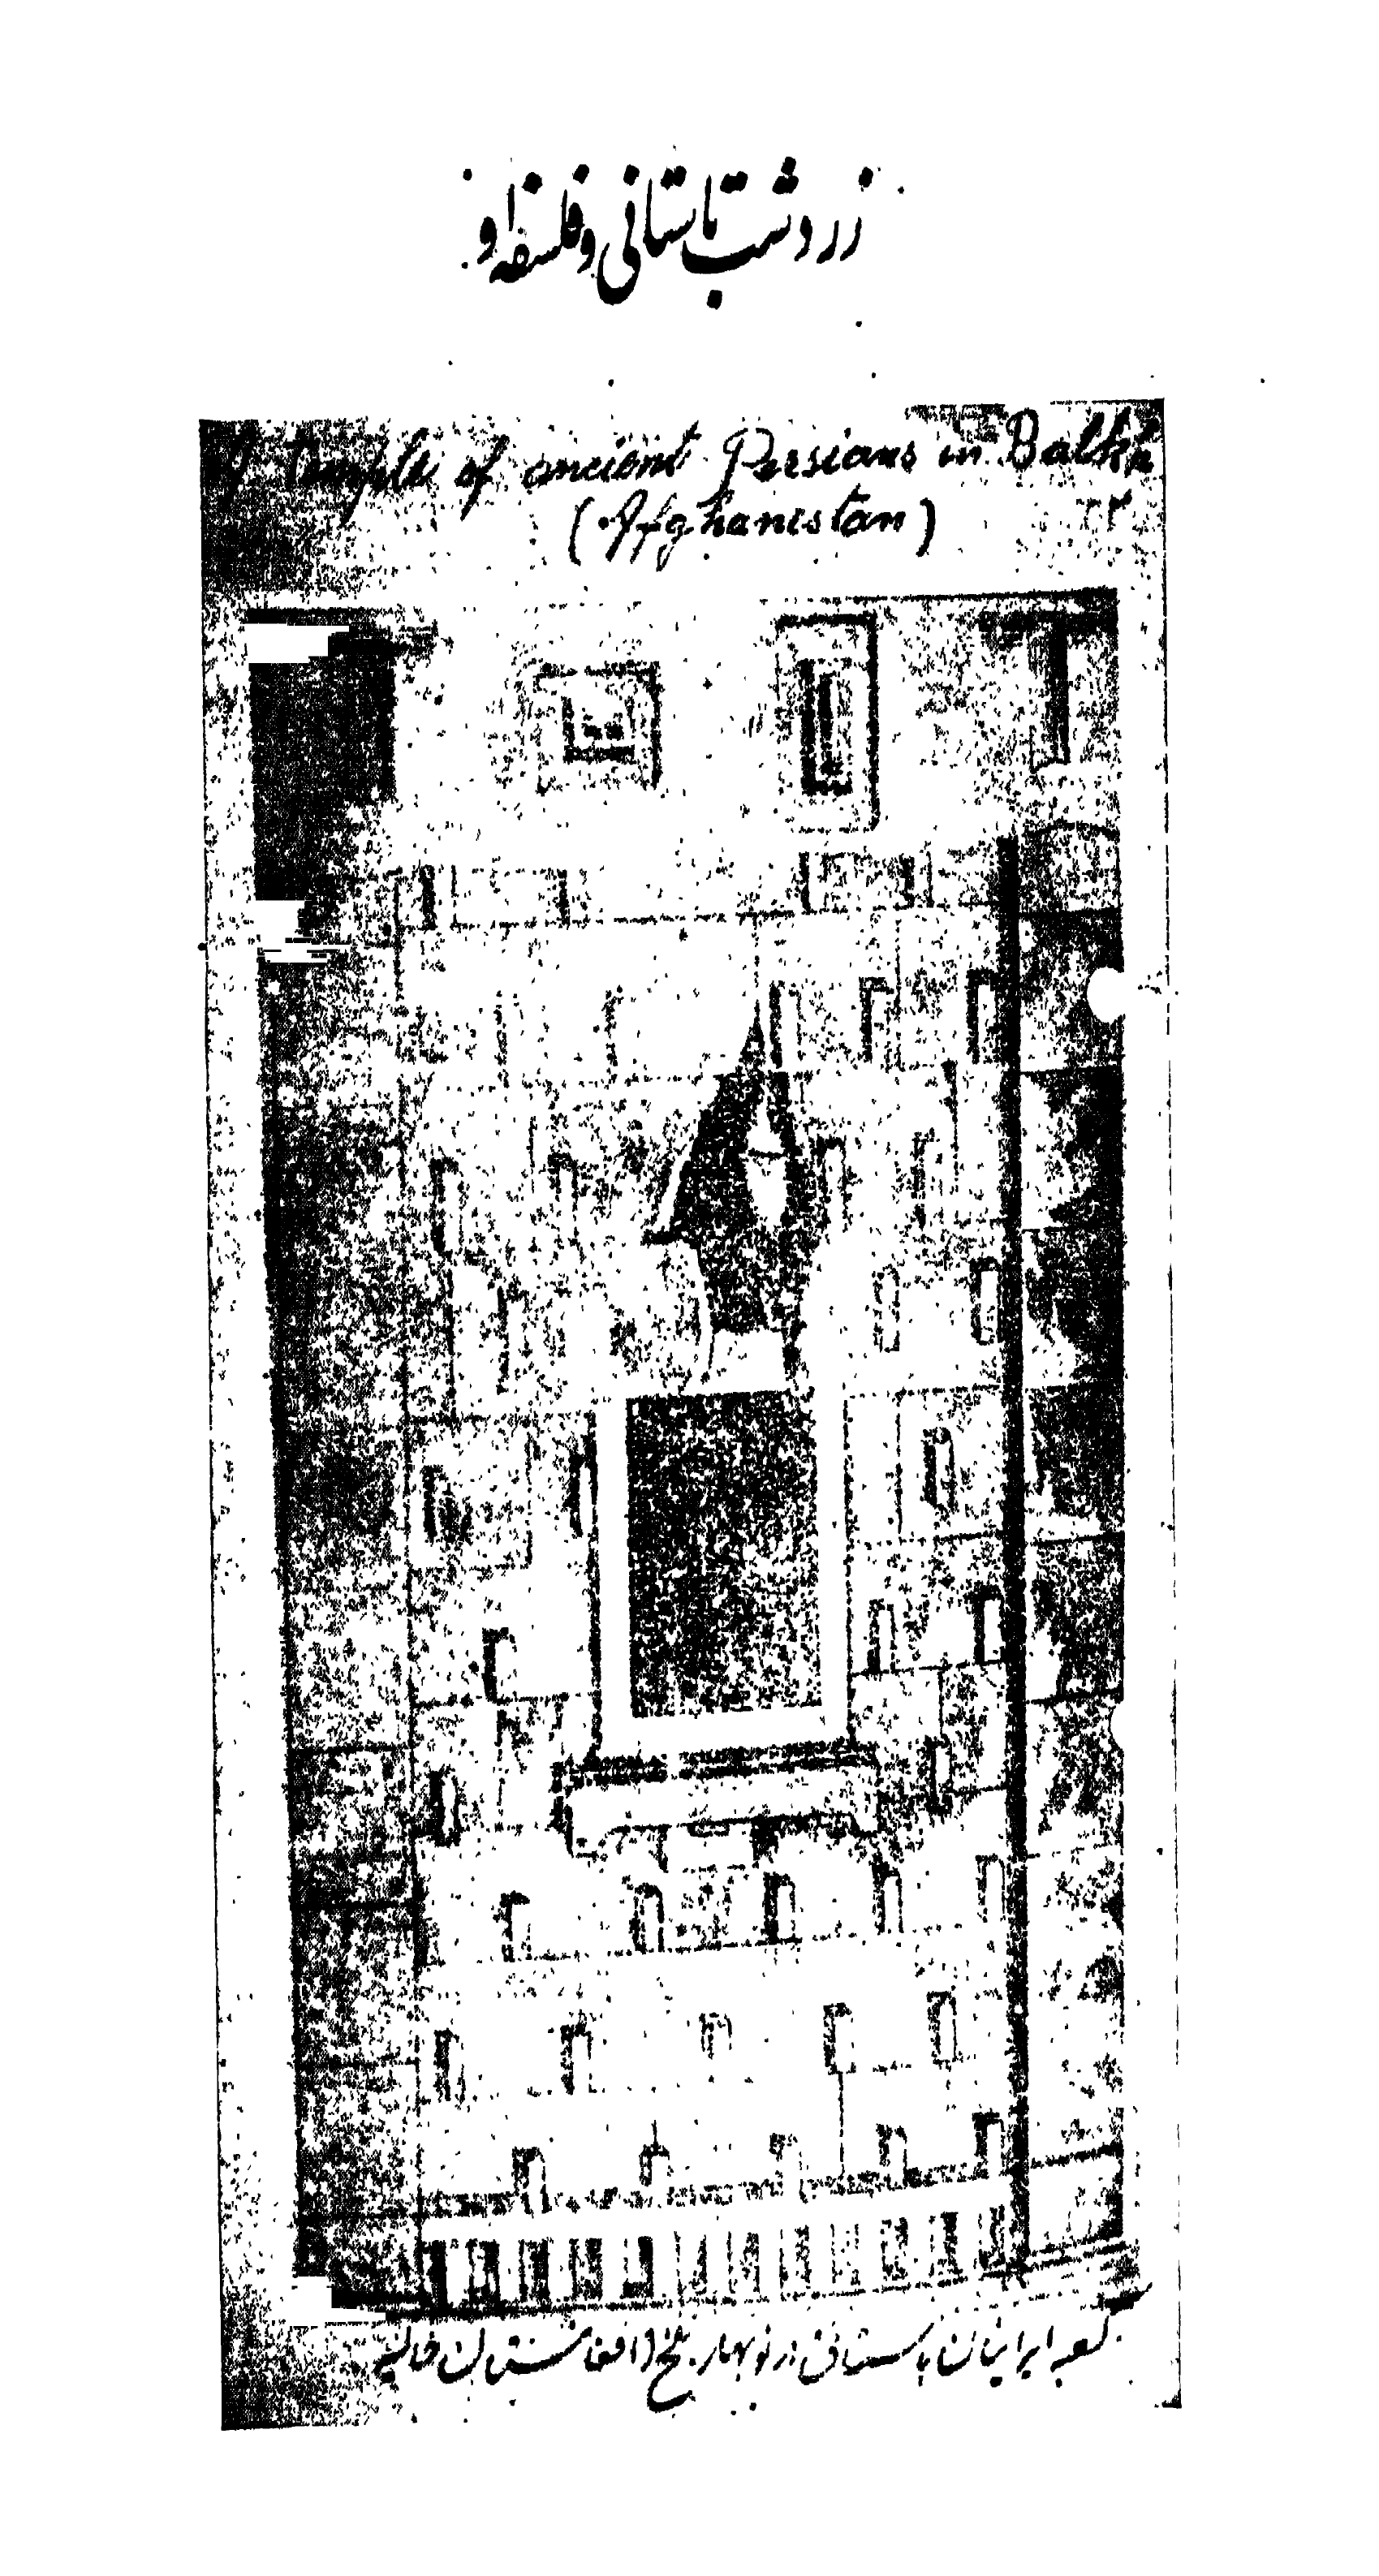 زردشت باستانی و فلسفه او
A Temple of ancient Persians in Balkh
(Afghanistan)
کعبه ایرانیان باستانی در نوبهار بلخ (افغانستان حالیه